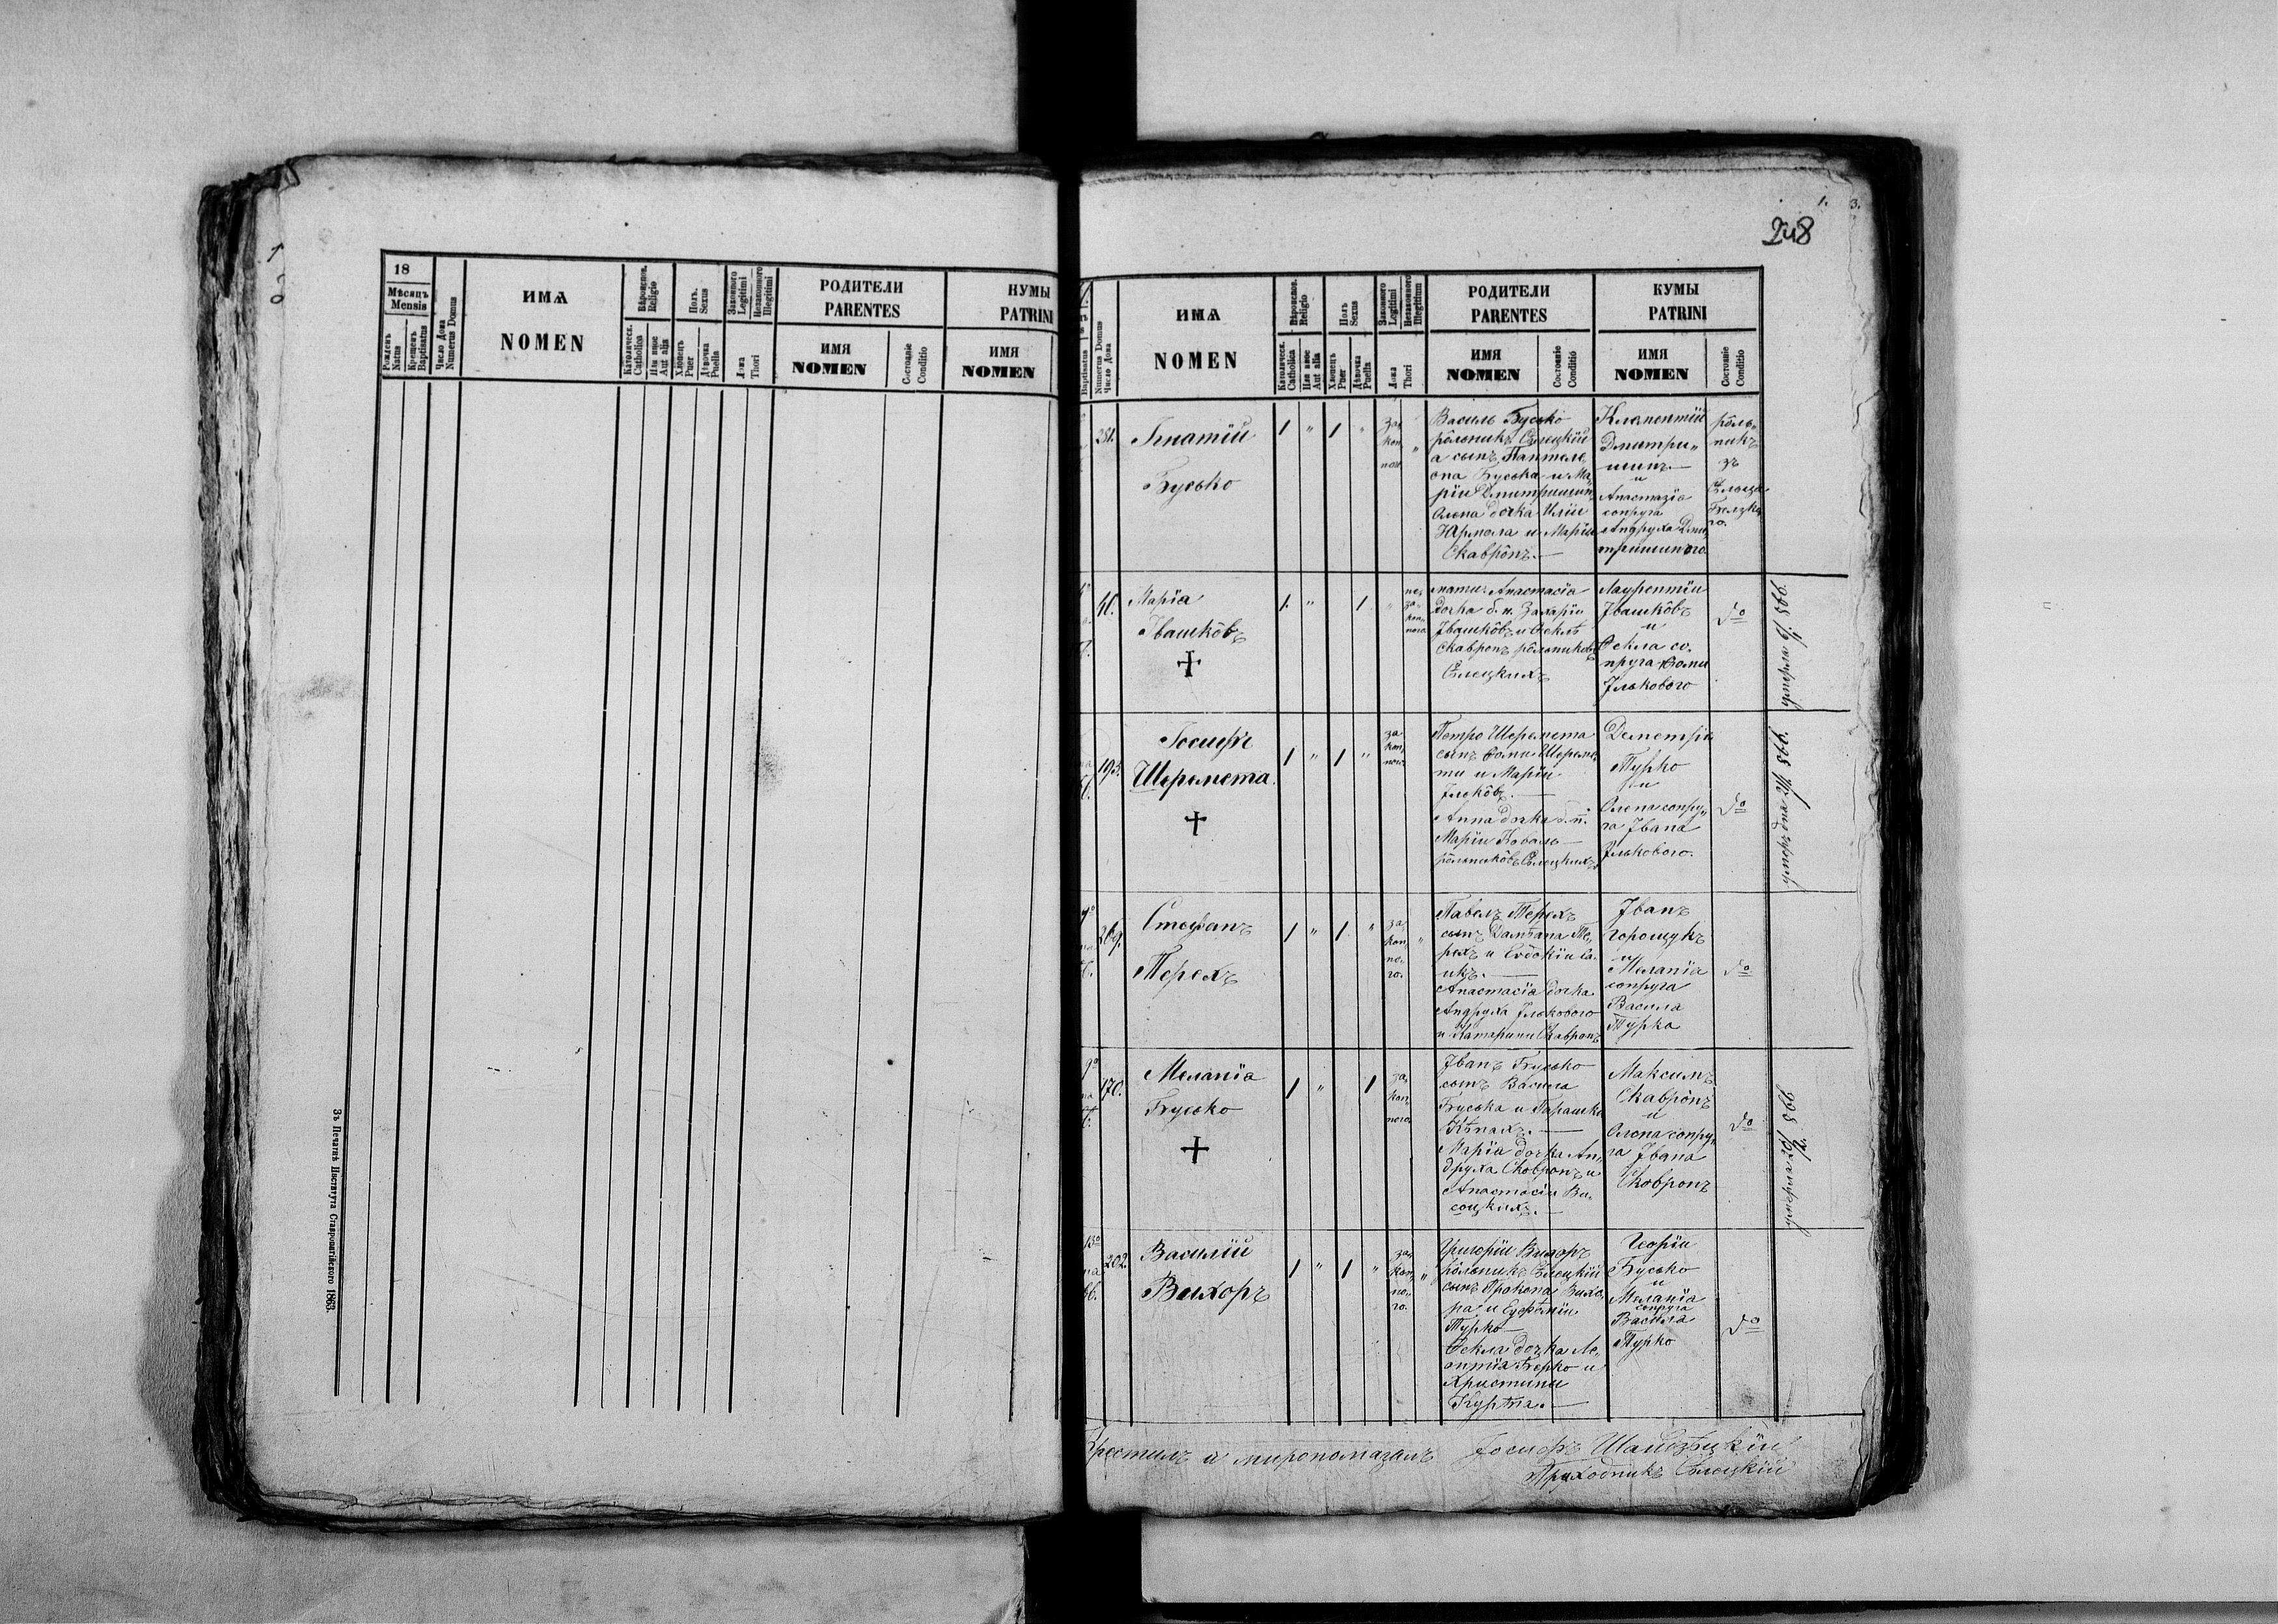 248
1.
3.
18
Мѣсяцъ
Mensis
Рожденъ
Natus
Крещенъ
Baptisatus
Число Дома
Numerus Domus
ИМѦ
NOMEN
Вѣроиспов.
Religio
Католическ.
Catholica
Или иное
Aut alia
Полъ.
Sexus
Хлопецъ
Puer
Дѣвочка
Puella
Законного
Legitimi
Незаконного
Illegitimi
Ложа
Thori
РОДИТЕЛИ
PARENTES
ИМЯ
NOMEN
Состояніе
Conditio
КУМЫ
PATRINI
ИМЯ
NOMEN
Зъ Печатнѣ Института Ставропигійского 1863.
Baptisatus
Numerus Domus
Число Дома
ИМѦ
NOMEN
Вѣроиспов.
Religio
Католическ.
Catholica
Или иное
Aut alia
Полъ
Sexus
Хлопецъ
Puer
Дѣвочка
Puella
Законного
Legitimi
Незаконного
Illegitimum
Ложа
Thori
РОДИТЕЛИ
PARENTES
ИМЯ
NOMEN
Состояніе
Conditio
КУМЫ
PATRINI
ИМЯ
NOMEN
Состояніе
Conditio
251.
Игнатій
Бусько
1 " 1 "
за
кон
ног.
Василь Бусько
рôльникъ Сѣлецкій
а сынъ Пантеле,
она Буська и Ма,
ріи Дмитришин,
Олена дочка Иліи
Ярмола и Маріи
Скаврôнъ.—
Климентій
Дмитри,,
шинъ—
и
Анастазіа
сопруга
Андруха Дми
тришиного
рôль,,
никъ
зъ
Сѣльца
Белзко
го.
41.
Маріа
Івашкôвъ
✝
1. " 1.
нез
за,
кон,
ного
мати Анастасіа
дочка б. п. Захаріи
Івашкôвъ и Феклѣ
Скавронъ рôльникôвъ
Сѣлецкихъ
Лаурентіи
Івашкôвъ
и
Фекла со.
пруга Фоми
Ількового
do
умерла 6/1. 866.
195.
Іосифъ
Шеремета.
✝
1 " 1 "
за
кон,
ного.
Петро Шеремета
сынъ Фоми Шереме,
ти и Маріи
Ількôвъ.—
Анна дочка б. п.
Маріи Коваль—
рôльникôвъ Сѣлецкихъ
Деметрій
Турко
и
Олена сопру,,
га Івана
Ількового.
do
умеръ дна 866.
269.
Стефанъ
Терехъ
1 " 1. "
за,
кон,
но.
го.
Павелъ Терехъ
сынъ Даміана Те,
рехъ и Евдокіи Са.
икъ.—
Анастасіа дочка
Андруха Ількового
и Катарини Скавронъ
Іванъ
Горощукъ
и
Меланіа
сопруга
Василя
Турка
do
170.
Меланіа
Бусько
✝
1 " 1
за,
кон,
ного.
Іванъ Бусько
сынъ Василя
Буська и Парашки
Кѣнахъ.—
Маріа дочка Ан,
друха Сковронъ и
Анастасіи Ви,
соцкихъ.—
Максимъ
Скаврôнъ
и
Олена сопру,
га Івана
Сковронъ
do
умерла 866
13º
202.
Василій
Вихоръ
1 " 1 "
за,
кон,
но.
го.
Григорій Вихоръ
рôльникъ Сѣлецкій
сынъ Прокопа Вихо,
ра и Еуфеміи
Турко—
Фекла дочка Ле,
онтіа Берко и
Христини
Курѣпа.—
Георгіи
Бусько
и
Меланіа
сопруга
Василя
Турко
do
Крестилъ и миропомазалъ Іосифъ Шанѣвцкій
Приходникъ Сѣлецкій